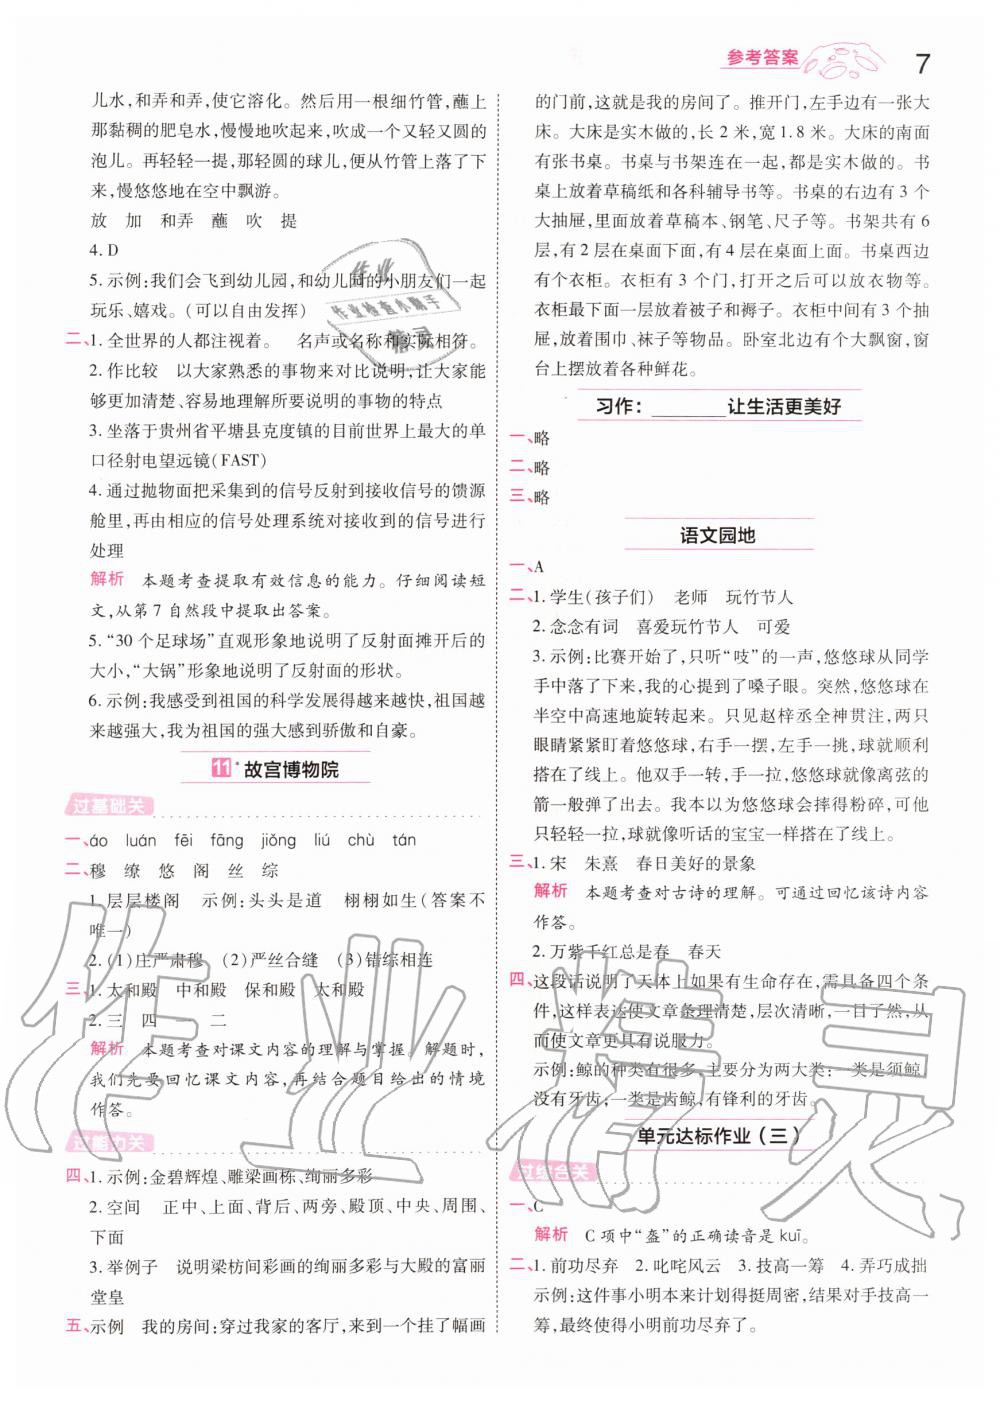 参考答案 7
儿水,和弄和弄,使它溶化。然后用一根细竹管,蘸上
那黏稠的肥皂水,慢慢地吹起来,吹成一个又轻又圆的
泡儿。再轻轻一提,那轻圆的球儿,便从竹管上落了下
来,慢悠悠地在空中飘游。
放 加 和弄 蘸 吹 提
4. D
5. 示例:我们会飞到幼儿园,和幼儿园的小朋友们一起
玩乐、嬉戏。(可以自由发挥)
二、1. 全世界的人都注视着。 名声或名称和实际相符。
2. 作比较 以大家熟悉的事物来对比说明,让大家能
够更加清楚、容易地理解所要说明的事物的特点
3. 坐落于贵州省平塘县克度镇的目前世界上最大的单
口径射电望远镜(FAST)
4. 通过抛物面把采集到的信号反射到接收信号的馈源
舱里,再由相应的信号处理系统对接收到的信号进行
处理
解析 本题考查提取有效信息的能力。仔细阅读短
文,从第 7 自然段中提取出答案。
5. “30 个足球场”直观形象地说明了反射面摊开后的
大小,“大锅”形象地说明了反射面的形状。
6. 示例:我感受到祖国的科学发展得越来越快,祖国越
来越强大,我为祖国的强大感到骄傲和自豪。
11* 故宫博物院
过基础关
一、áo luán fēi fāng jiǒng liú chù tán
二、穆 缭 悠 阁 丝 综
1. 层层楼阁 示例:头头是道 栩栩如生(答案不
唯一)
2. (1)庄严肃穆 (2)严丝合缝 (3)错综相连
三、1. 太和殿 中和殿 保和殿 太和殿
2. 三 四 一 二
解析 本题考查对课文内容的理解与掌握。解题时,
我们先要回忆课文内容,再结合题目给出的情境
作答。
过能力关
四、1. 示例:金碧辉煌、雕梁画栋、绚丽多彩
2. 空间 正中、上面、背后、两旁、殿顶、中央、周围、
下面
3. 举例子 说明梁枋间彩画的绚丽多彩与大殿的富丽
堂皇
五、示例 我的房间:穿过我家的客厅,来到一个挂了幅画
的门前,这就是我的房间了。推开门,左手边有一张大
床。大床是实木做的,长 2 米,宽 1.8 米。大床的南面
有张书桌。书桌与书架连在一起,都是实木做的。书
桌上放着草稿纸和各科辅导书等。书桌的右边有 3 个
大抽屉,里面放着草稿本、钢笔、尺子等。书架共有 6
层,有 2 层在桌面下面,有 4 层在桌面上面。书桌西边
有个衣柜。衣柜有 3 个门,打开之后可以放衣物等。
衣柜最下面一层放着被子和褥子。衣柜中间有 3 个抽
屉,放着围巾、袜子等物品。卧室北边有个大飘窗,窗
台上摆放着各种鲜花。
习作:________让生活更美好
一、略
二、略
三、略
语文园地
一、A
二、1. 学生(孩子们) 老师 玩竹节人
2. 念念有词 喜爱玩竹节人 可爱
3. 示例:比赛开始了,只听“吱”的一声,悠悠球从同学
手中落了下来,我的心提到了嗓子眼。突然,悠悠球在
半空中高速地旋转起来。只见赵梓丞全神贯注,两只
眼睛紧紧盯着悠悠球,右手一摆,左手一挑,球就顺利
搭在了线上。他双手一转,手一拉,悠悠球就像离弦的
箭一般弹了出去。我本以为悠悠球会摔得粉碎,可他
只轻轻一拉,球就像听话的宝宝一样搭在了线上。
三、1. 宋 朱熹 春日美好的景象
解析 本题考查对古诗的理解。可通过回忆该诗内容
作答。
2. 万紫千红总是春 春天
四、这段话说明了天体上如果有生命存在,需具备四个条
件,这样表达使文章条理清楚,层次清晰,一目了然,从
而使文章更具有说服力。
示例:鲸的种类有很多,主要分为两大类:一类是须鲸,
没有牙齿,一类是齿鲸,有锋利的牙齿。
单元达标作业(三)
过综合关
一、C
解析 C 项中“盔”的正确读音是 kuī。
二、1. 前功尽弃 2. 叱咤风云 3. 技高一筹 4. 弄巧成拙
示例:这件事小明本来计划得挺周密,结果对手技高一
筹,最终使得小明前功尽弃了。
作业
作业检查小助手
精灵
作业精灵